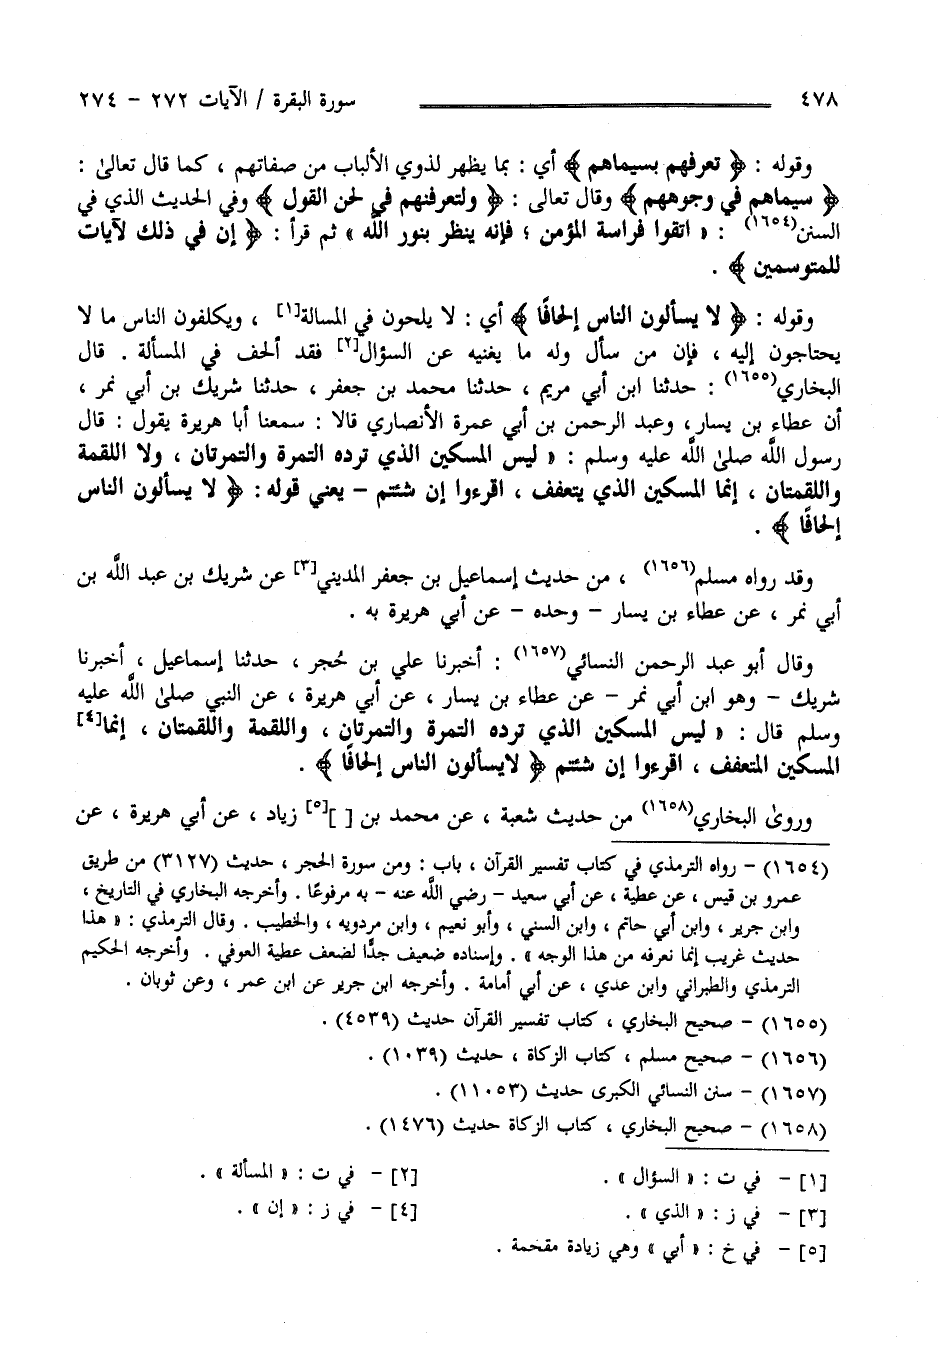 ٤٧٨ سورة البقرة / الآيات ٢٧٢ - ٢٧٤
وقوله : ﴿ تعرفهم بسيماهم ﴾ أي : بما يظهر لذوي الألباب من صفاتهم ، كما قال تعالىٰ :
﴿ سيماهم في وجوههم ﴾ وقال تعالى : ﴿ ولتعرفنهم في لحن القول ﴾ وفي الحديث الذي في
السنن(١٦٥٤) : « اتقوا فراسة المؤمن ؛ فإنه ينظر بنور اللَّه » ثم قرأ : ﴿ إن في ذلك لآيات
للمتوسمين ﴾ .
وقوله : ﴿ لا يسألون الناس إلحافًا ﴾ أي : لا يلحون في المسالة[١] ، ويكلفون الناس ما لا
يحتاجون إليه ، فإن من سأل وله ما يغنيه عن السؤال[٢] فقد ألحف في المسألة . قال
البخاري(١٦٥٥) : حدثنا ابن أبي مريم ، حدثنا محمد بن جعفر ، حدثنا شريك بن أبي نمر ،
أن عطاء بن يسار، وعبد الرحمن بن أبي عمرة الأنصاري قالا : سمعنا أبا هريرة يقول : قال
رسول اللَّه صلىٰ اللَّه عليه وسلم : « ليس المسكين الذي ترده التمرة والتمرتان ، ولا اللقمة
واللقمتان ، إنما المسكين الذي يتعفف ، اقرءوا إن شئتم - يعني قوله : ﴿ لا يسألون الناس
إلحافًا ﴾ .
وقد رواه مسلم(١٦٥٦) ، من حديث إسماعيل بن جعفر المديني[٣] عن شريك بن عبد اللَّه بن
أبي نمر ، عن عطاء بن يسار - وحده - عن أبي هريرة به .
وقال أبو عبد الرحمن النسائي(١٦٥٧) : أخبرنا علي بن حُجر ، حدثنا إسماعيل ، أخبرنا
شريك - وهو ابن أبي نمر - عن عطاء بن يسار ، عن أبي هريرة ، عن النبي صلىٰ اللَّه عليه
وسلم قال : « ليس المسكين الذي ترده التمرة والتمرتان ، واللقمة واللقمتان ، إنما[٤]
المسكين المتعفف ، اقرءوا إن شئتم ﴿ لايسألون الناس إلحافًا ﴾ .
وروىٰ البخاري(١٦٥٨) من حديث شعبة ، عن محمد بن [ ][٥] زياد ، عن أبي هريرة ، عن
(١٦٥٤) - رواه الترمذي في كتاب تفسير القرآن ، باب : ومن سورة الحجر ، حديث (٣١٢٧) من طريق
عمرو بن قيس ، عن عطية ، عن أبي سعيد - رضي اللَّه عنه - به مرفوعًا . وأخرجه البخاري في التاريخ ،
وابن جرير ، وابن أبي حاتم ، وابن السني ، وأبو نعيم ، وابن مردويه ، والخطيب . وقال الترمذي : « هذا
حديث غريب إنما نعرفه من هذا الوجه » . وإسناده ضعيف جدًّا لضعف عطية العوفي . وأخرجه الحكيم
الترمذي والطبراني وابن عدي ، عن أبي أمامة . وأخرجه ابن جرير عن ابن عمر ، وعن ثوبان .
(١٦٥٥) - صحيح البخاري ، كتاب تفسير القرآن حديث (٤٥٣٩) .
(١٦٥٦) - صحيح مسلم ، كتاب الزكاة ، حديث (١٠٣٩) .
(١٦٥٧) - سنن النسائي الكبرى حديث (١١٠٥٣) .
(١٦٥٨) - صحيح البخاري ، كتاب الزكاة حديث (١٤٧٦) .
[١] - في ت : « السؤال » . [٢] - في ت : « المسألة » .
[٣] - في ز : « الذي » . [٤] - في ز : « إن » .
[٥] - في خ : « أبي » وهي زيادة مقحمة .